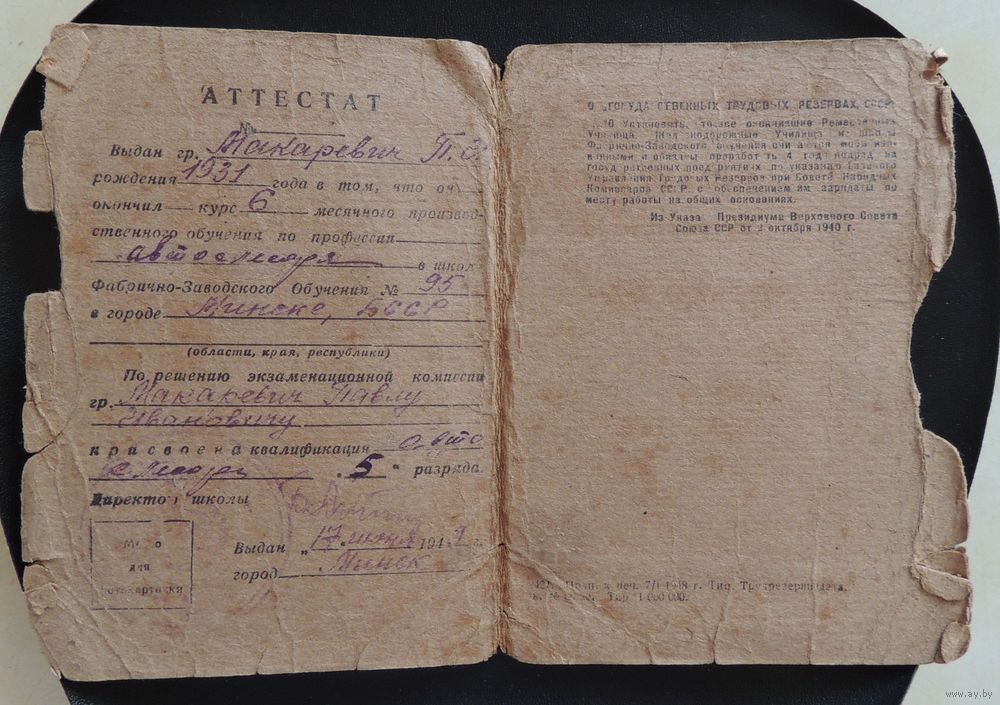 АТТЕСТАТ
№
Выдан гр. Макаревич П.
рождения 1931 года в том, что
окончил курс 6 месячного производ-
ственного обучения по профессии
автослесаря в школ
Фабрично-Заводского Обучения № 95
в городе Минске, БССР
(области, края, республики)
По решению экзаменационной комиссии
гр. Макаревич Павлу
Ивановичу
присвоена квалификация авто
слесаря „5“ разряда.
Директор школы
Выдан „17“ июня 194 г.
город Минск
для
О ГОСУДА СТВЕННЫХ ТРУДОВЫХ РЕЗЕРВАХ СССР
10 Установить, то все окончившие Ремесленные
Училища Железнодорожные Училища и школы
Фабрично-Заводского обучения считаются
и обязаны проработать 4 год подряд на
государственных предприятиях по указанию Главного
Управления Трудовых Резервов при Совете Народных
Комиссаров СССР с обеспечением им зарплаты по
месту работы на общих основаниях.
Из Указа Президиума Верховного Совета
Союза ССР от 2 октября 1940 г.
к печ. 7/I 1948 г. Тип. Трудрезервиздата.
Тир 1 000 000.
www.ay.by